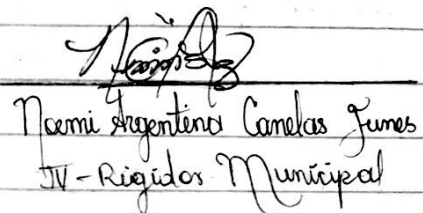 Noemi Argentina Canelas Funes
IV - Rigidor Municipal